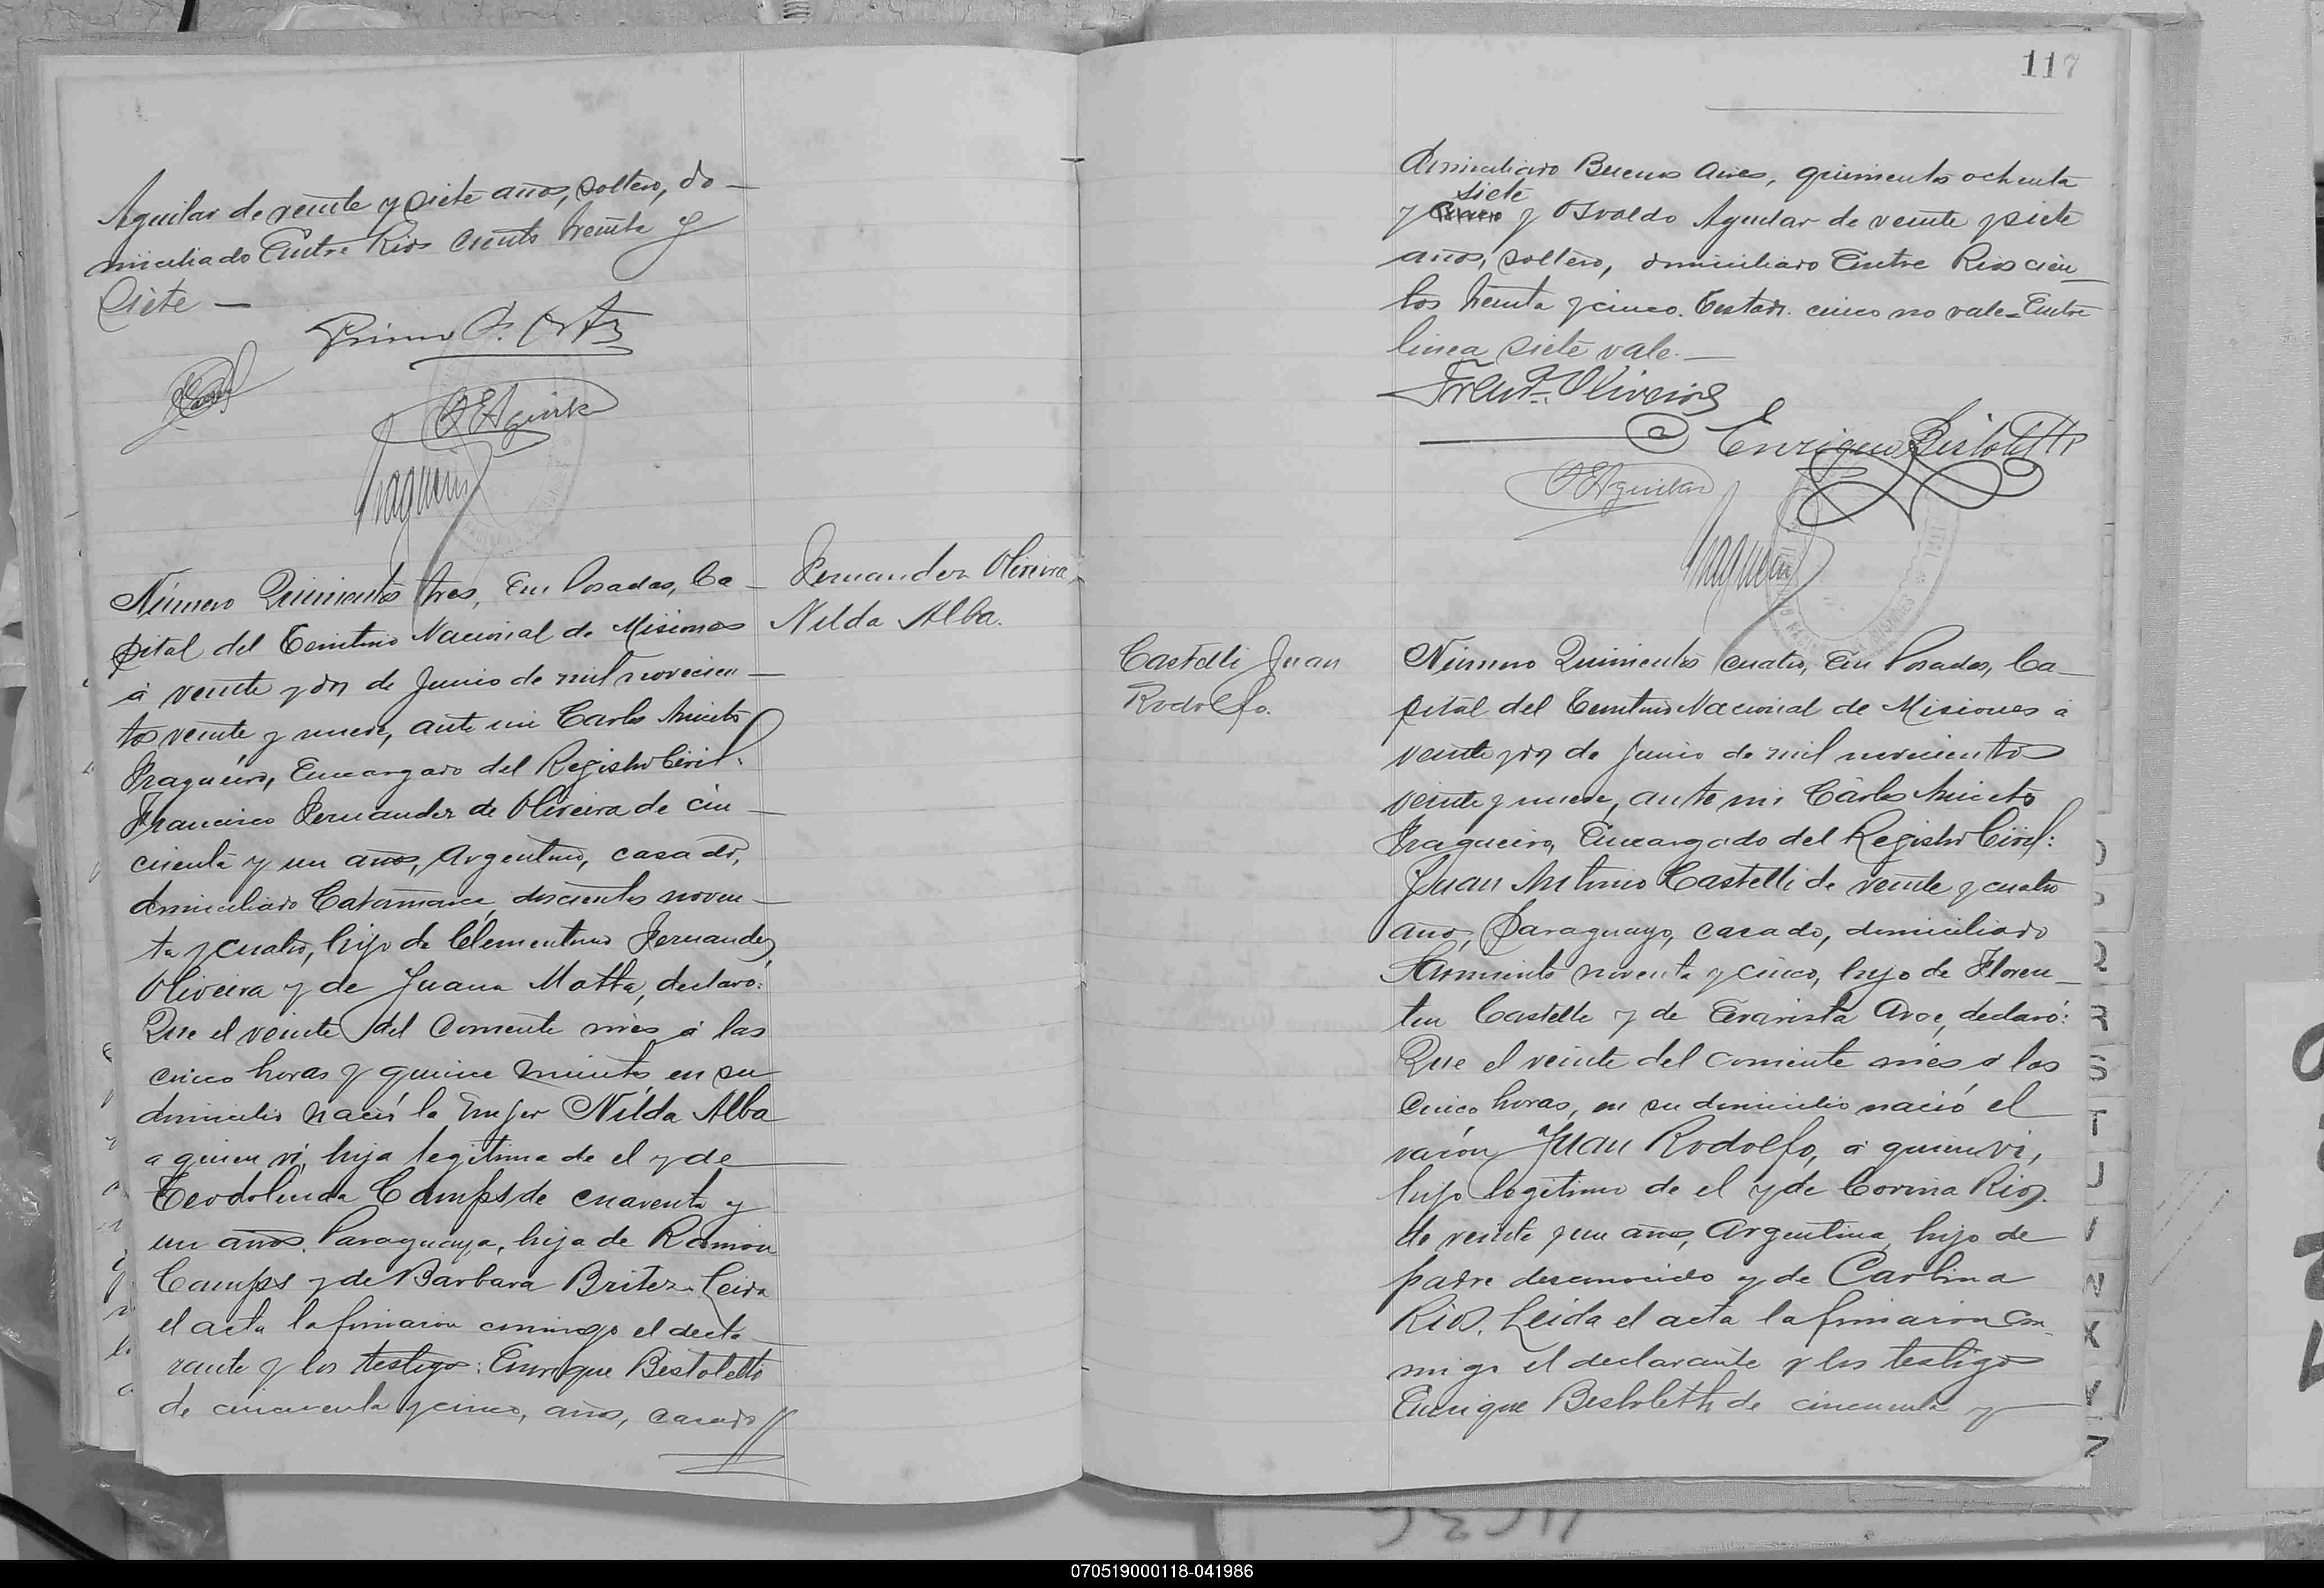 Aguilar de veinte y siete años, soltero, do-
miciliado Entre Rios ciento treinta y
siete —
Primo
O E Aguilar
Fragueiro
Número Quinientos tres, En Posadas, Ca-
pital del Territorio Nacional de Misiones
á veinte y dos de Junio de mil novecien-
tos veinte y nueve, ante mi Carlos Aniceto
Fragueiro, Encargado del Registro Civil:
Francisco Fernandez de Oliveira de cin-
cuenta y un años, Argentino, casado,
domiciliado Catamarca, doscientos noven-
ta y cuatro, hijo de Clementino Fernandez
Oliveira y de Juana Matta, declaró:
Que el veinte del corriente mes á las
cinco horas y quince minutos, en su
domicilio nació la mujer Nilda Alba
a quien vi, hija legitima de el y de
Teodolinda Camps de cuarenta y
un años, Paraguaya, hija de Ramon
Camps y de Barbara Britez. Leida
el acta la firmaron conmigo el decla-
rante y los testigos: Enrique Bestoletti
de cincuenta y cinco, años, casado
Fernandez Oliveira,
Nilda Alba.
117
domiciliado Buenos Aires, quinientos ochenta
siete
y cinco y Osvaldo Aguilar de veinte y siete
años, soltero, domiciliado Entre Rios cien-
tos treinta y cinco. Testado. cinco no vale=Entre
linea siete vale.—
Franco. Oliveira
Enrique Bistoletti
O E Aguilar
Fragueiro
Castelli Juan
Rodolfo.
Número Quinientos cuatro, En Posadas, Ca-
pital del Territorio Nacional de Misiones á
veinte y dos de Junio de mil novecientos
veinte y nueve, ante mi Cárlos Aniceto
Fragueiro, Encargado del Registro Civil:
Juan Antonio Castelli de veinte y cuatro
años, Paraguayo, casado, domiciliado
Sarmiento noventa y cinco, hijo de Floren-
tin Castelli y de Evarista Arce, declaró:
Que el veinte del corriente mes á las
cinco horas, en su domicilio nació el
varón Juan Rodolfo, á quien vi,
hijo legitimo de el y de Corina Rios.
de veinte y un años, Argentina, hijo de
padre desconocido y de Carlina
Rios. Leida el acta la firmaron con-
migo el declarante y los testigos
Enrique Bestoletti de cincuenta y
P
Q
R
S
T
U
V
N
X
Y
Z
070519000118-041986